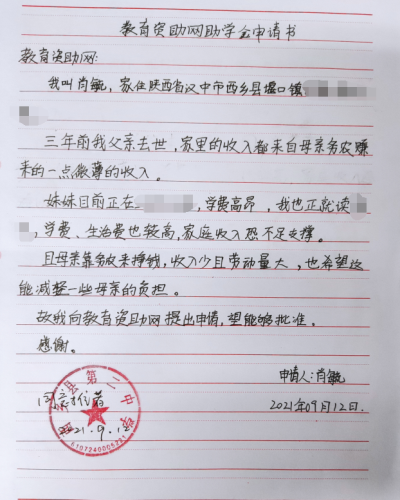 教育资助网助学金申请书
教育资助网:
我叫肖敏，家住陕西省汉中市西乡县堰口镇
三年前我父亲去世，家里的收入都来自母亲务农赚
来的一点微薄的收入。
妹妹目前正在，学费高昂，我也正就读
，学费、生活费也较高，家庭收入恐不足支撑。
且母亲靠务农来挣钱，收入少且劳动量大，也希望这
能减轻一些母亲的负担。
故我向教育资助网提出申请，望能够批准。
感谢。
申请人:肖敏
2021年09月12日.
同意推荐
2021.9.12
西乡县第二中学